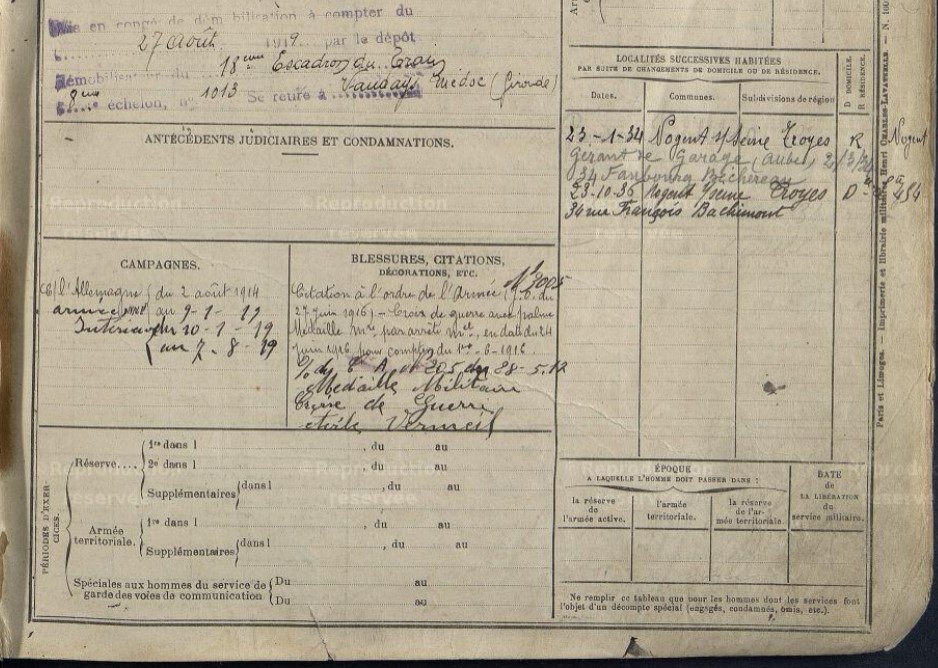 Mis en congé de démobilisation à compter du
27 Août 1919 par le dépôt
Démobilisateur du 18eme Escadron du Train
8me échelon, no 1013 Se retire à Vendays Médoc (Gironde)
ANTÉCÉDENTS JUDICIAIRES ET CONDAMNATIONS.
CAMPAGNES.
C/ l'Allemagne du 2 août 1914
armées au 9-1-19
Intérieur du 10-1-19
au 7-8-19
BLESSURES, CITATIONS,
DÉCORATIONS, ETC.
Citation à l'ordre de l'Armée (J.O. du
27 juin 1916) - Croix de guerre avec palme
Médaille mre par arrêté mel en date du 24
juin 1916 pour compter du 1er-6-1916.
205 du 28-5-
Médaille Militaire
Croix de Guerre
étoile Vermeil
PÉRIODES D'EXER-
CICES.
Réserve....
1re dans l , du au
2e dans l , du au
Supplémentaires dans l , du au
Armée
territoriale.
1re dans l , du au
Supplémentaires dans l , du au
Spéciales aux hommes du service de
garde des voies de communication
Du au
Du au
LOCALITÉS SUCCESSIVES HABITÉES
PAR SUITE DE CHANGEMENTS DE DOMICILE OU DE RÉSIDENCE.
Dates. Communes. Subdivisions de région
D DOMICILE.
R RÉSIDENCE.
23-1-34 Nogent s/Seine Troyes R Nogent
Gérant de Garage (Aube)
34 Faubourg Béchereau
23-10-36 Nogent s/Seine Troyes D
34 rue François Bachimont
ÉPOQUE
A LAQUELLE L'HOMME DOIT PASSER DANS :
la réserve
de
l'armée active.
l'armée
territoriale.
la réserve
de l'ar-
mée territoriale.
DATE
de
LA LIBÉRATION
du
service militaire.
Ne remplir ce tableau que pour les hommes dont les services font
l'objet d'un décompte spécial (engagés, condamnés, omis, etc.).
Paris et Limoges. — Imprimerie et librairie militaires Henri CHARLES-LAVAUZELLE. — N. 100
©Reproduction
réservée
©Reproduction
réservée
©Reproduction
réservée
©Reproduction
réservée